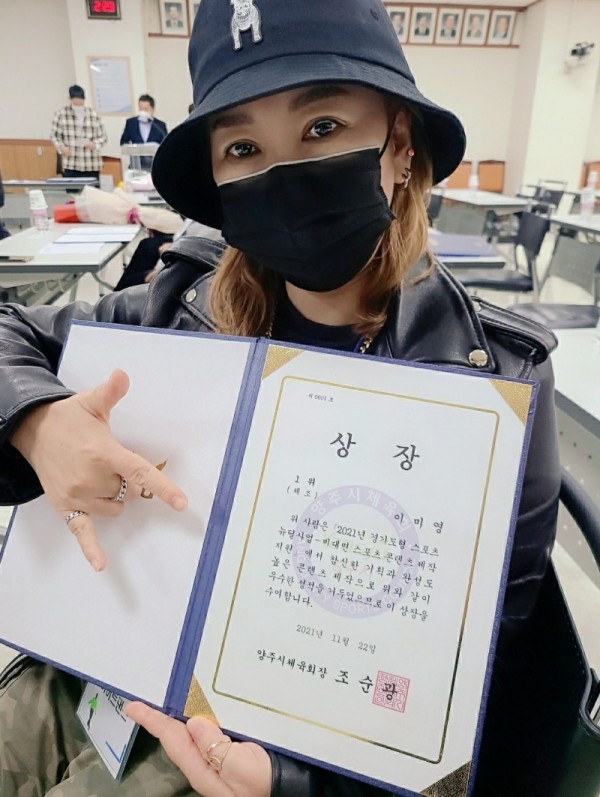 2:23
제 0001 호
상 장
1 위
(체조)
이 미 영
위 사람은 「2021년 경기도형 스포츠
뉴딜사업-비대면 스포츠 콘텐츠 제작
지원」에서 참신한 기획과 완성도
높은 콘텐츠 제작으로 위와 같이
우수한 성적을 거두었으므로 이 상장을
수여합니다.
2021년 11월 22일
양주시체육회장 조 순 광
양주시체육